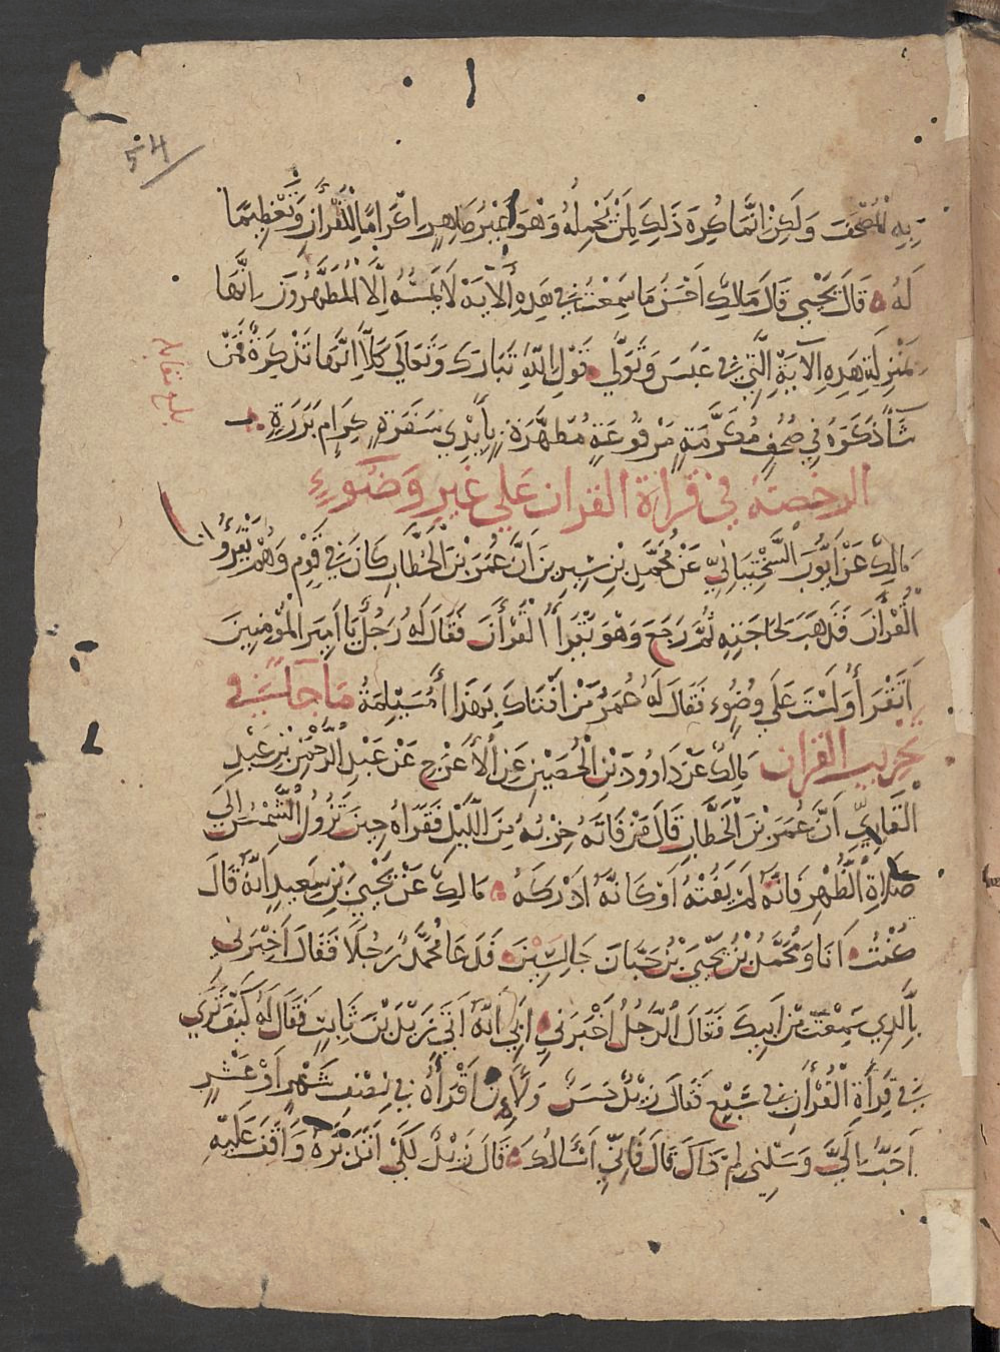 54
يديه المصحف ولكن انما كره ذلك لمن يحمله وهو غير طاهر اكراما للقرأن وتعظيما
له قال يحيى قال مالك احسن ما سمعت في هذه الأية لا يمسه الا المطهرون انها
بمنزلة هذه الآية التي في عبس وتولى قول الله تبارك وتعالى كلا انها تذكرة فمن
شآ ذكره في صحف مكرمة مرفوعة مطهرة بايدي سفرة كرام بررة
بلغ مقابلة
الرخصة في قراة القران على غير وضوء
مالك عن ايوب السختياني عن محمد بن سيرين أن عمر بن الخطاب كان في قوم وهم يقرؤن
القرأن فذهب لحاجته ثم رجع وهو يقرأ القرأن فقال له رجل يا امير المؤمنين
اتقرأ ولست على وضوء فقال له عمر من افتاك بهذا أمسيلمة ما جا في
تحزيب القران مالك عن داوود بن الحصين عن الأعرج عن عبد الرحمن بن عبد
القاري ان عمر بن الخطاب قال من فاته حزبه من الليل فقراه حين تزول الشمس الى
صلاة الظهر فانه لم يفته او كانه ادركه مالك عن يحيى بن سعيد انه قال
كنت انا ومحمد بن يحيى بن حبان جالسين فدعا محمد رجلا فقال اخبرني
بالذي سمعت من ابيك فقال الرجل اخبرني ابي انه اتى زيد بن ثابت فقال له كيف ترى
في قرأة القرأن في سبع فقال زيد حسن ولان اقرأه في نصف شهر او عشر
احب الي وسلني لم ذاك قال فاني اسالك قال زيد لكي اتدبره واقف عليه